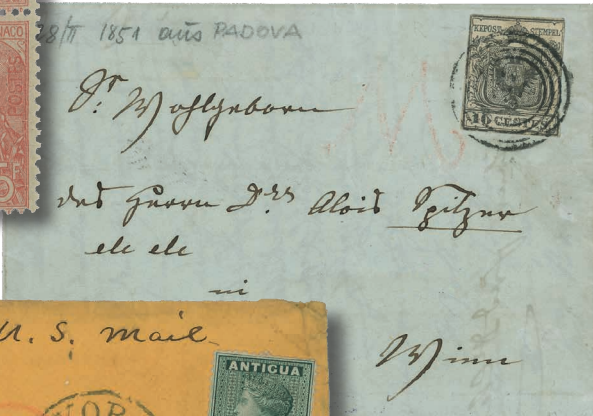 NACO
POSTES
5F
28/II 1851 aus PADOVA
KKPOST-STEMPEL
10 CENTES
Sr Wohlgeborn
des Herrn Drs Alois Spitzer
etc etc
in
Wien
U. S. Mail
ANTIGUA